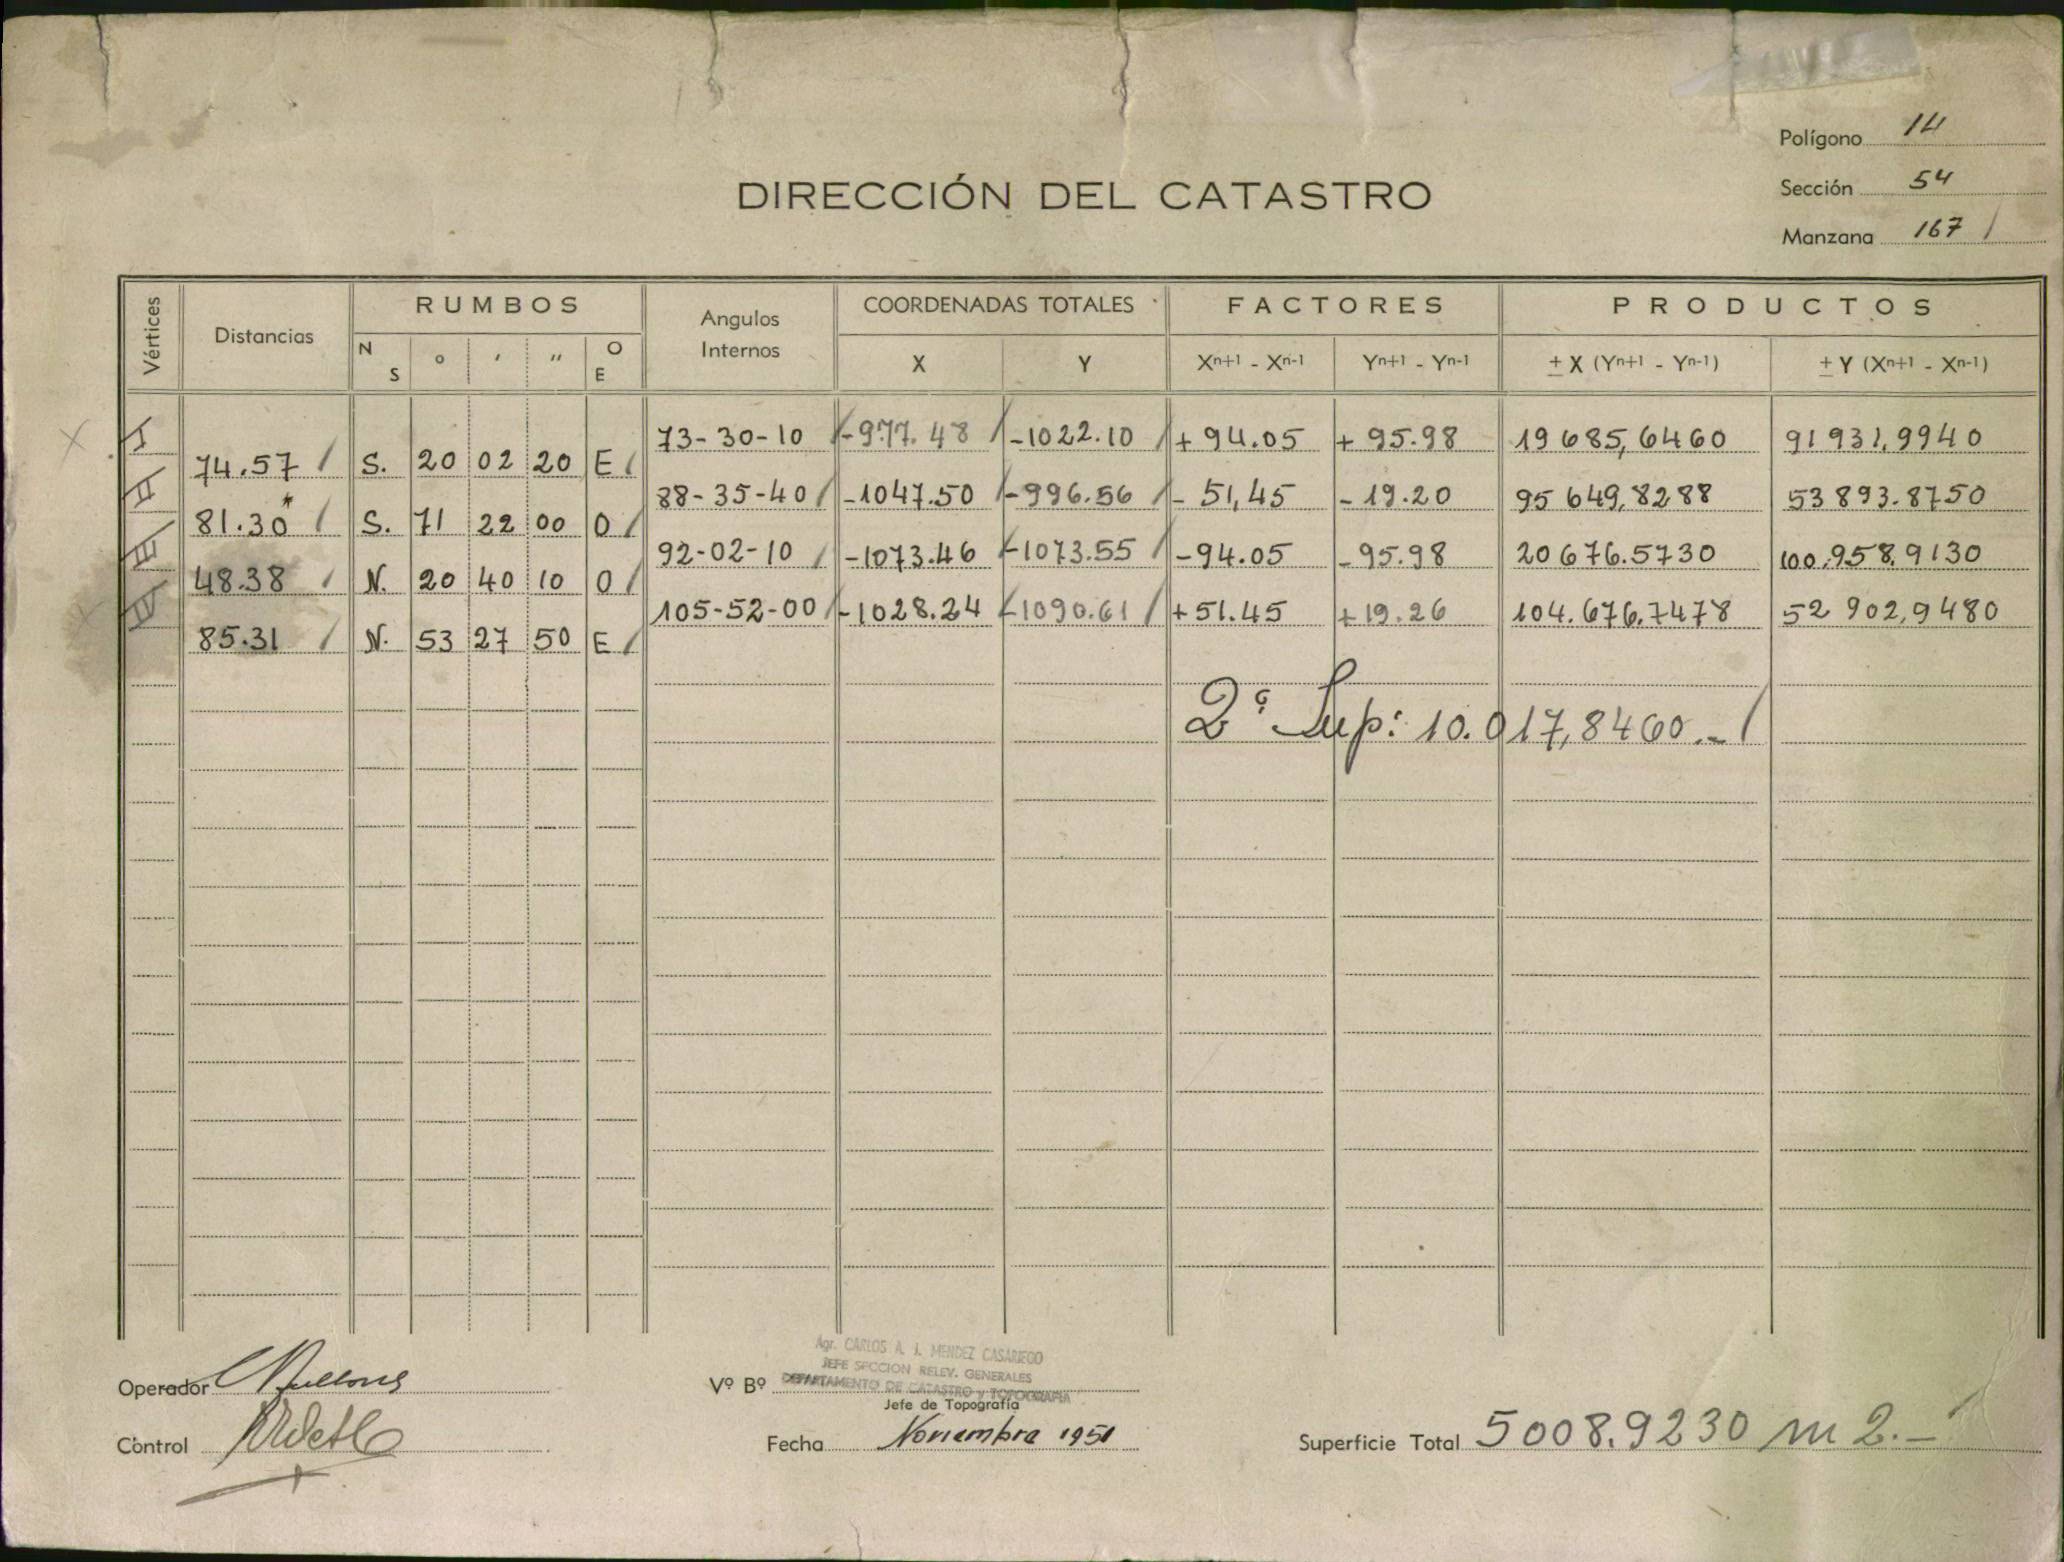 Polígono 14
DIRECCIÓN DEL CATASTRO
Sección 54
Manzana 167 /
Vértices Distancias RUMBOS Angulos Internos COORDENADAS TOTALES FACTORES PRODUCTOS
N S ° ′ ″ O E X Y Xn+1 - Xn-1 Yn+1 - Yn-1 ± X (Yn+1 - Yn-1) ± Y (Xn+1 - Xn-1)
I 73-30-10 /-977.48 /-1022.10 /+94.05 +95.98 19685,6460 91931,9940
74.57 / S. 20 02 20 E /
II 88-35-40 / -1047.50 /-996.56 /- 51,45 -19.20 95649,8288 53893.8750
81.30* / S. 71 22 00 O /
III 92-02-10 / -1073.46 /-1073.55 / -94.05 -95.98 20676.5730 100.958,9130
48.38 / N. 20 40 10 O /
IV 105-52-00 /-1028.24 /-1090.61 / +51.45 +19.26 104.676.7478 52 902,9480
85.31 / N. 53 27 50 E /
2ª Sup: 10.017,8460.- /
Agr. CARLOS A. J. MENDEZ CASARIEGO
JEFE SECCION RELEV. GENERALES
DEPARTAMENTO DE CATASTRO y TOPOGRAFIA
Operador
Vº Bº
Jefe de Topografía
Control
Fecha Noviembre 1951
Superficie Total 5008.9230 m2.-